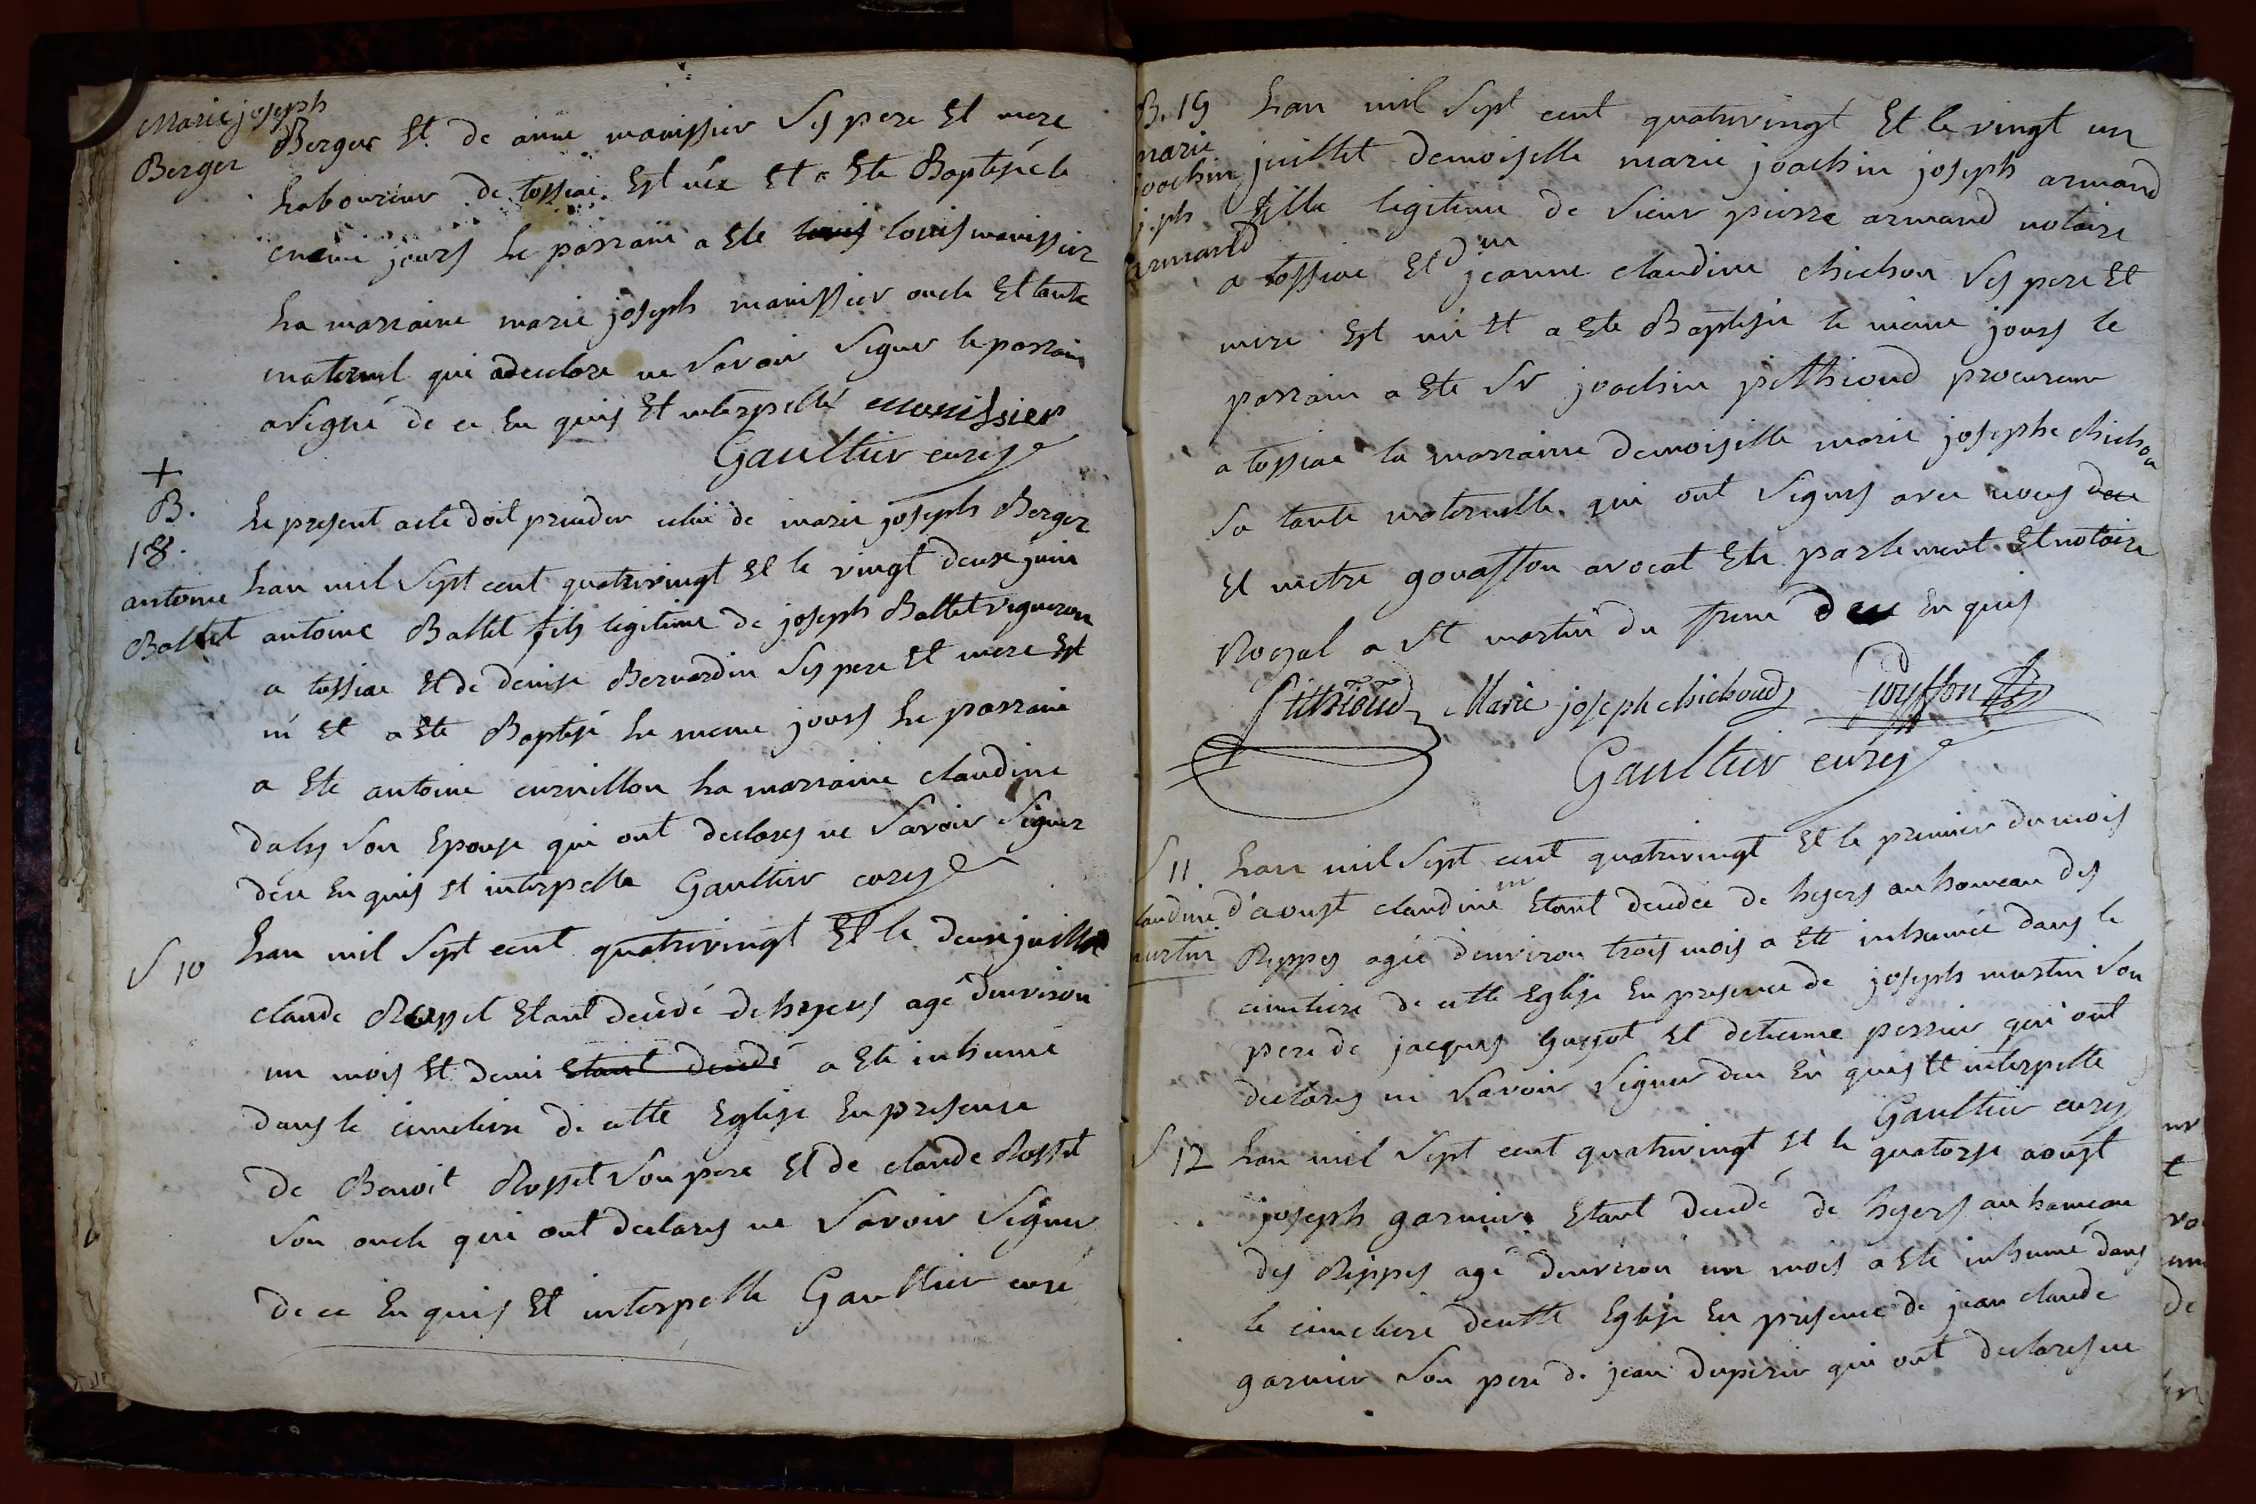 Marie joseph
Berger
Berger Et de anne manissier Ses pere Et mere
Laboureur de tossiac Est née Et a Ete Baptisée le
meme jours Le parrain a Ete louis louis manissier
La marraine marie joseph manissier oncle Et tante
maternel qui a declare ne Savoir Signer le parrain
a Signé de ce En quis Et interpellé manissier
Gaultier curé
+
B.
18.
antoine
Ballet
Le present acte doit preceder celui de marie joseph Berger
Lan mil Sept cent quatrevingt Et le vingt deux juin
antoine Ballet fils legitime de joseph Ballet vigneron
a tossiac Et de denise Bernardin Ses pere Et mere Est
né Et a Ete Baptisé Le meme jours Le parrain
a Ete antoine curnillon La marraine claudine
dales Son Epouse qui ont declares ne Savoir Signer
dece En quis Et interpelle Gaultier curé
S 10
Lan mil Sept cent quatrevingt Et le deux juillet
claude Rosset Etant decedé de hyers agé denviron
un mois Et demi Etant decedé a Ete inhumé
dans le cimetiere de cette Eglise En presence
de Benoit Rosset Son pere Et de claude Rosset
Son oncle qui ont declares ne Savoir Signer
de ce En quis Et interpelle Gaultier curé
B. 19
marie
joachin
j.ph
armand
Lan mil Sept cent quatrevingt Et le vingt un
juillet demoiselle marie joachin joseph armand
fille legitime de Sieur pierre armand notaire
a tossiac Et dm jeanne claudine chichon Ses pere Et
mere Est né Et a Ete Baptisée le même jours le
parrain a Ete Sr joachin pitthioud procureur
a tossiac la marraine demoiselle marie josephe chichon
Sa tante maternelle qui ont Signes avec nous dece
Et metre gouasson avocat Ele parlement Et notaire
Royal a St martin du frene dece En quis
Pitthioud Marie joseph chichoud
Gaultier curé
S 11
claudine
martin
Lan mil Sept cent quatrevingt Et le premier du mois
d'aoust claudine m Etant decedée de hyers au hameau des
Rippes agée denviron trois mois a Ete inhumée dans le
cimetiere de cette Eglise En presence de joseph martin Son
pere de jacques guyot Et detienne perrier qui ont
declares ne Savoir Signer dece En quis Et interpelle
Gaultier curé
S 12
Lan mil Sept cent quatrevingt Et le quatorze aoust
joseph garnier Etant decedé de hyers au hameau
des Rippes agé denviron un mois a Ete inhumé dans
le cimetiere decette Eglise En presence de jean claude
garnier Son pere de jean duperier qui ont declares ne